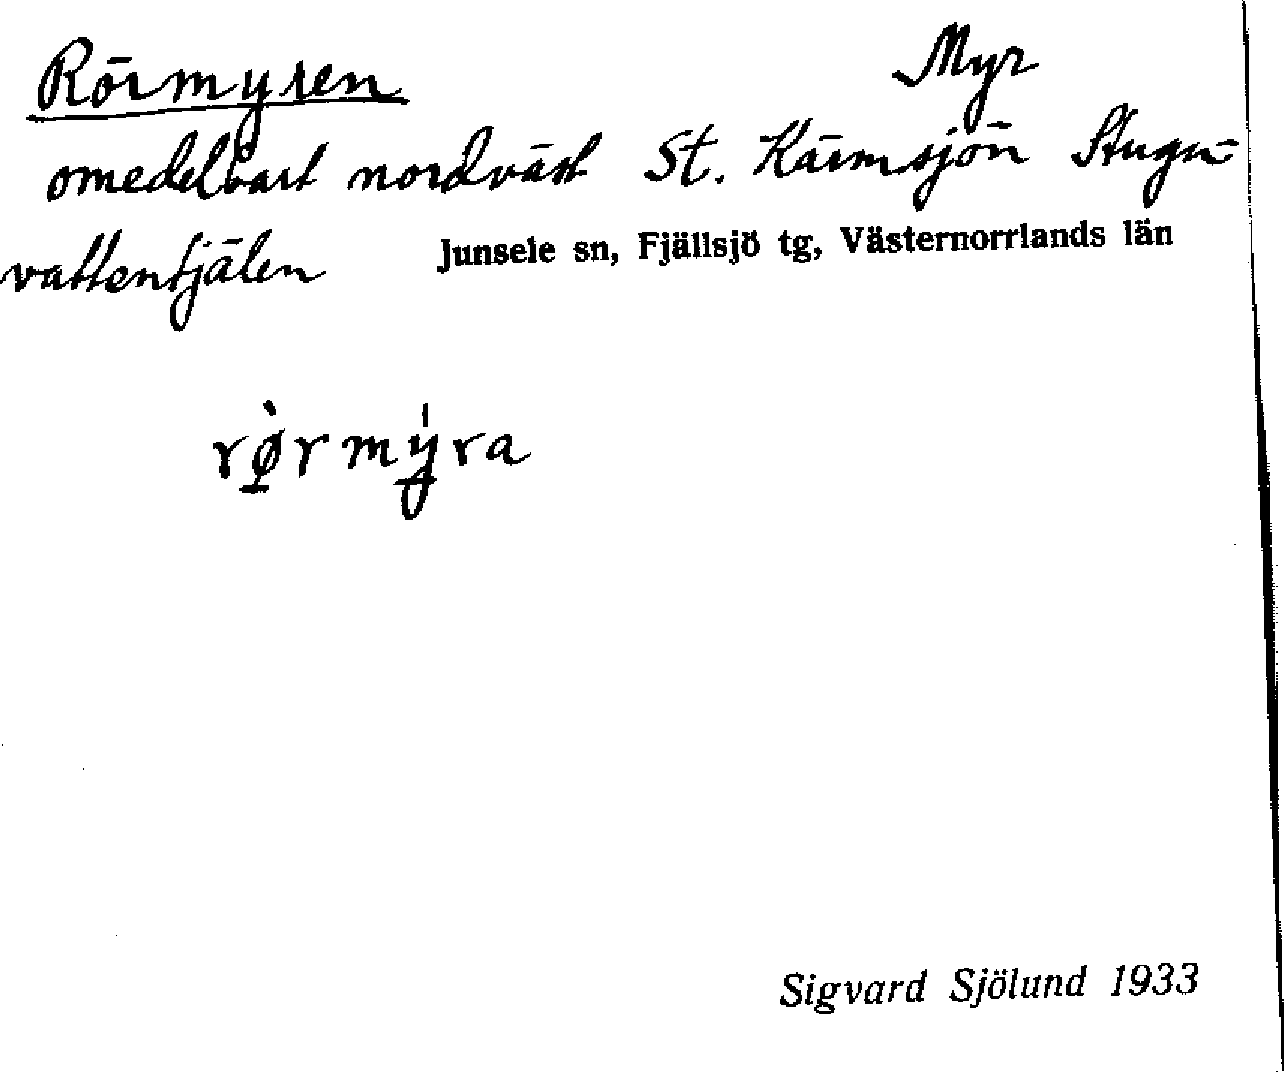 Rörmyren Myr
omedelbart nordväst St. Kärmsjön Stugu-
vattentjälen Junsele sn, Fjällsjö tg, Västernorrlands län
rø̀rmy̍ra
Sigvard Sjölund 1933